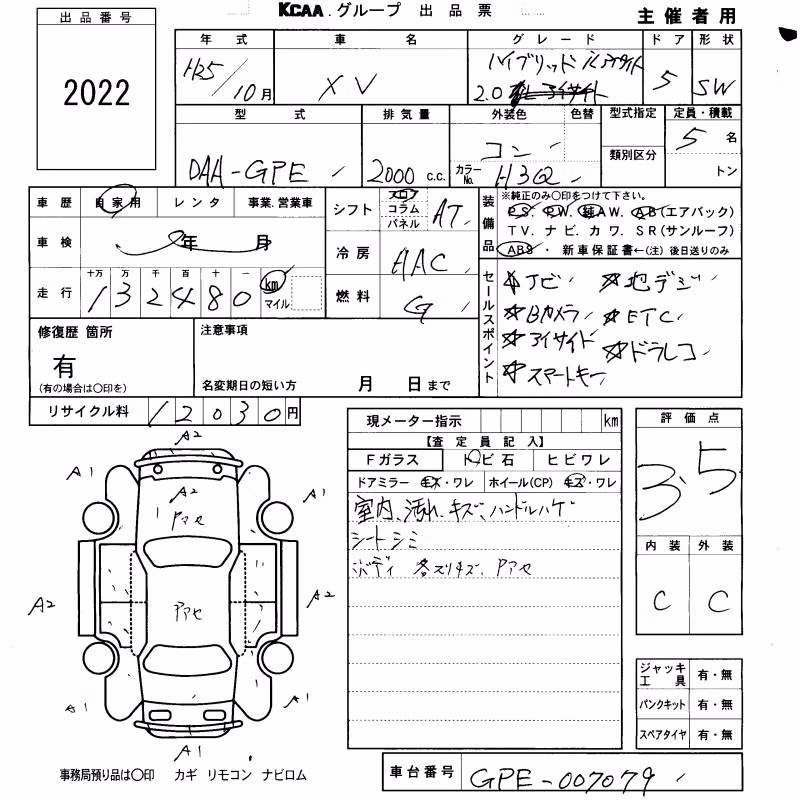 KCAA.グループ 出品票
主催者用
出品番号
2022
年式 車名 グレード ドア 形状
H25/10月 XV ハイブリッド 2.0 5 SW
型式 排気量 外装色 色替 型式指定 定員・積載
DAA-GPE 2000 c.c. コン カラーNo. H3Q 類別区分 5名
トン
車歴 自家用 レンタ 事業.営業車
車検 年 月
走行 十万 万 千 百 十 一
132480 km マイル
シフト フロ コラム パネル AT
冷房 AAC
燃料 G
装備品 ※純正のみ〇印をつけて下さい。
PS. PW. 純AW. AB(エアバック)
TV. ナビ. カワ. SR(サンルーフ)
ABS・新車保証書←(注)後日送りのみ
セールスポイント
☆ナビ ☆地デジ
☆Bカメラ ☆ETC
☆アイサイト ☆ドラレコ
☆スマートキー
修復歴 箇所
有
(有の場合は〇印を)
注意事項
名変期日の短い方 月 日まで
リサイクル料 12030円
現メーター指示 km
【査定員記入】
Fガラス トビ石 ヒビワレ
ドアミラー キズ・ワレ ホイール(CP) キズ・ワレ
室内、汚れ、キズ、ハンドルハゲ
シートシミ
ボディ 各スリキズ、Pアセ
評価点
3.5
内装 外装
C C
ジャッキ工具 有・無
パンクキット 有・無
スペアタイヤ 有・無
A2
A1 A1
A2
Pアセ
A2 Pアセ A2
A1 A1
A1
事務局預り品は〇印 カギ リモコン ナビロム
車台番号 GPE-007079